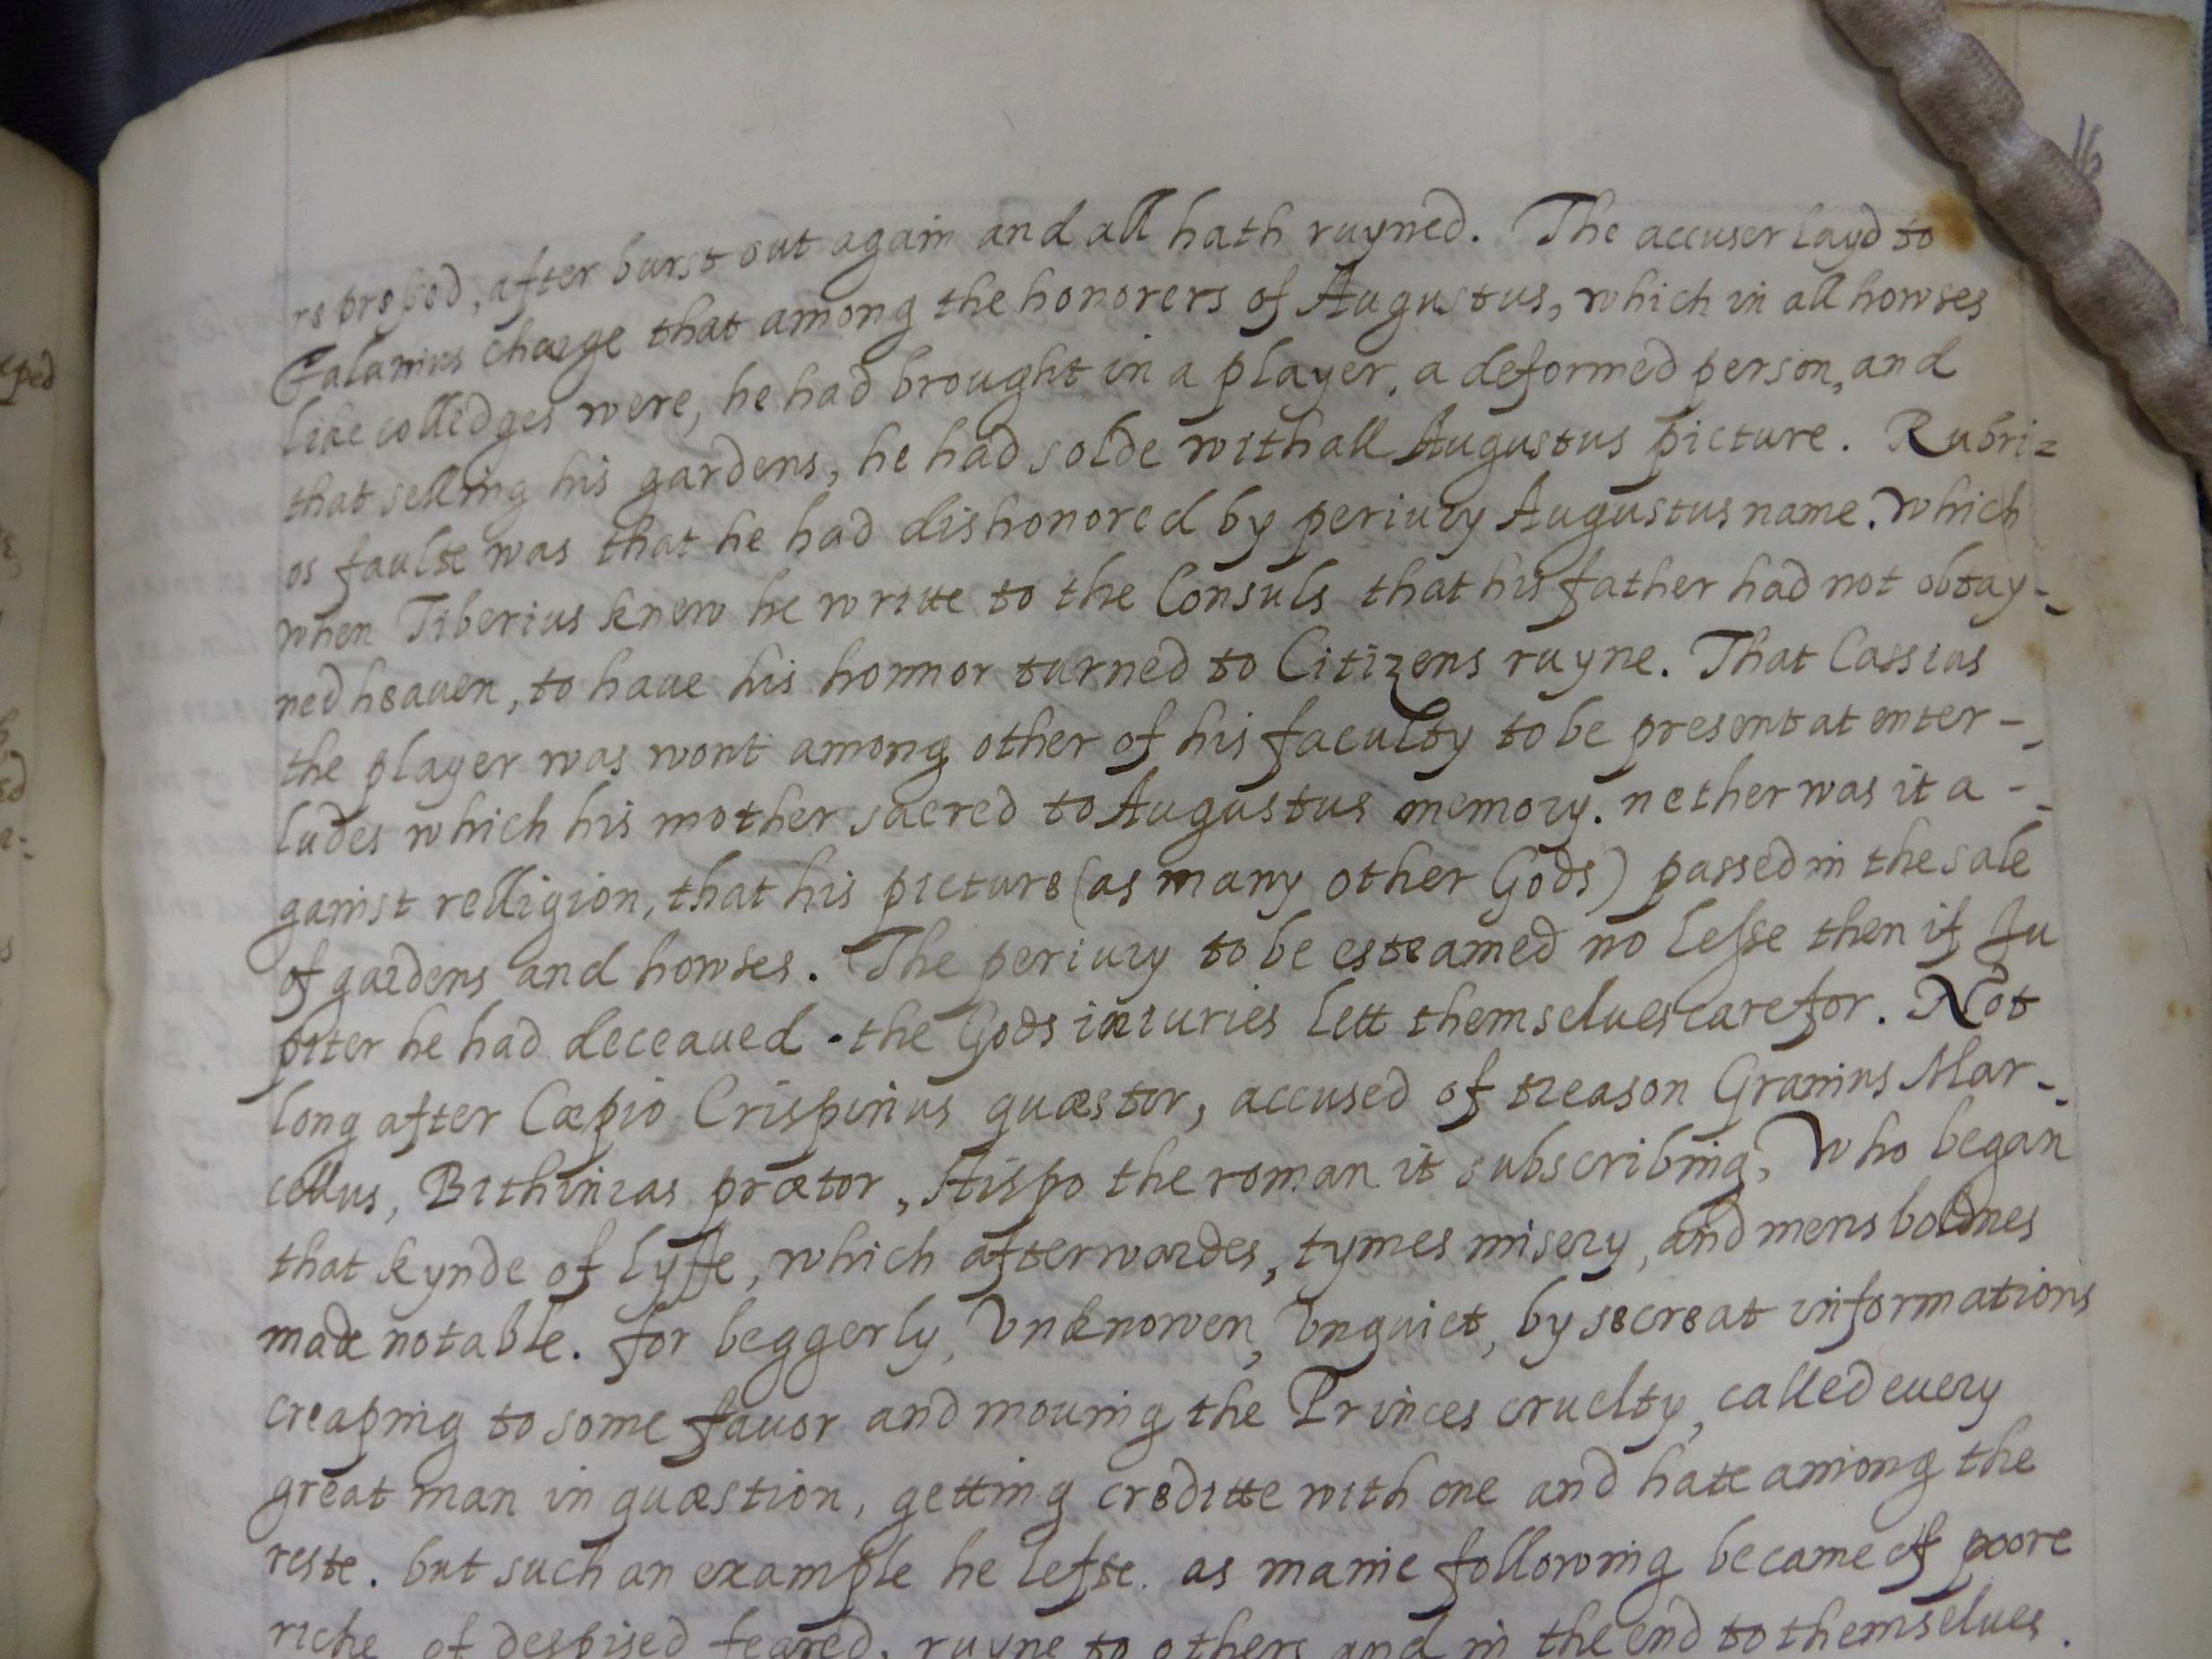 16
represed, after burst out again and all hath ruyned. The accuser layd to
Falanius charge that among the honorers of Augustus, which in all howses
like colledges were, he had brought in a player, a deformed person, and
that selling his gardens, he had solde withall Augustus picture. Rubri=
os faulte was that he had dishonored by periury Augustus name. which
when Tiberius knew he writte to the Consuls that his father had not obtay-
ned heauen, to haue his honnor turned to Citizens ruyne. That Cassius
the player was wont among other of his faculty to be present at enter-
ludes which his mother sacred to Augustus memory. nether was it a-
gainst relligion, that his picture (as many other Gods) passed in the sale
of gardens and howses. The periury to be esteamed no lesse then if Ju
piter he had deceaued. the Gods iniuries lett themselues care for. Not
long after Cæpio Crispinus quæstor, accused of treason Granius Mar-
cellus, Bithinias prætor, Hispo the roman it subscribing, Who began
that kynde of lyffe, which afterwardes, tymes misery, and mens boldnes
made notable. for beggerly, Vnknowen, Vnquiet, by secreat informations
creaping to some fauor and mouing the Princes cruelty, called euery
great man in quæstion, getting creditte with one and hate among the
reste. but such an example he lefte. as manie following became of poore
riche, of despised feared, ruyne to others and in the end to themselues.
ped